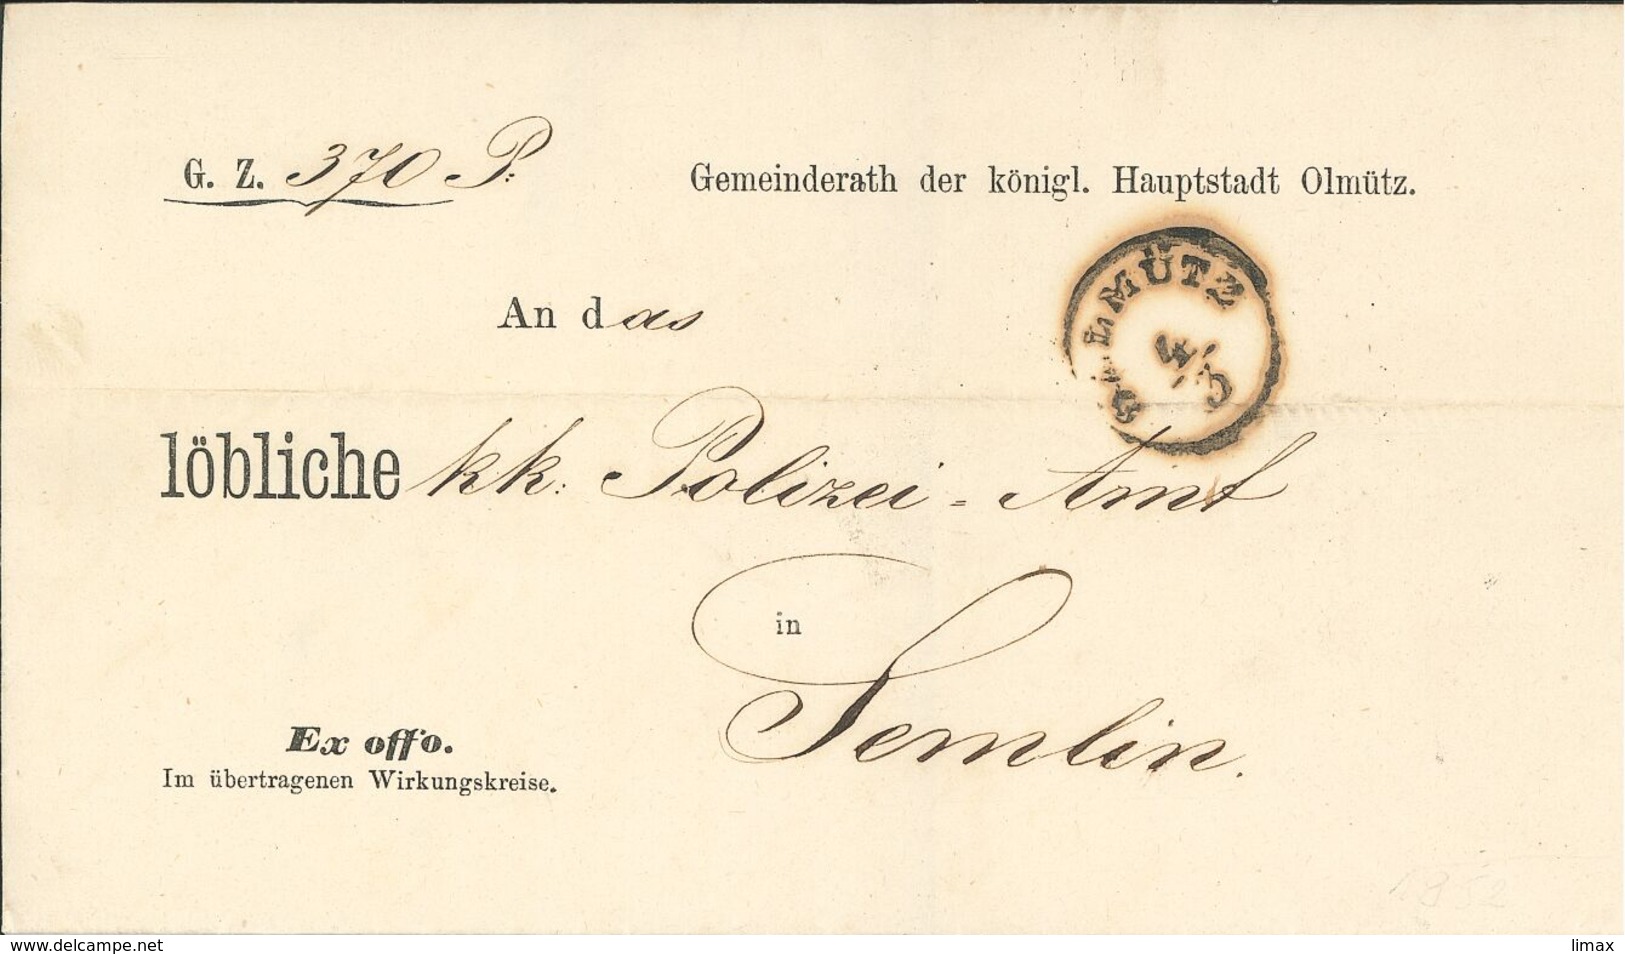 G. Z. 370 P:
Gemeinderath der königl. Hauptstadt Olmütz.
OLMÜTZ
4/3
An das
löbliche kk: Polizei = Amt
in
Semlin.
Ex offo.
Im übertragenen Wirkungskreise.
1852
www.delcampe.net
limax